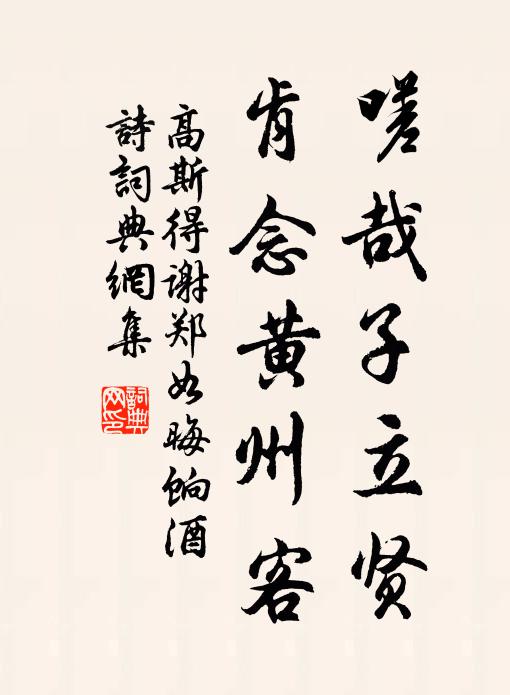 嗟哉子立贤
肯念黄州客
高斯得谢郑如晦饷酒
詩詞典網集
詞典网印